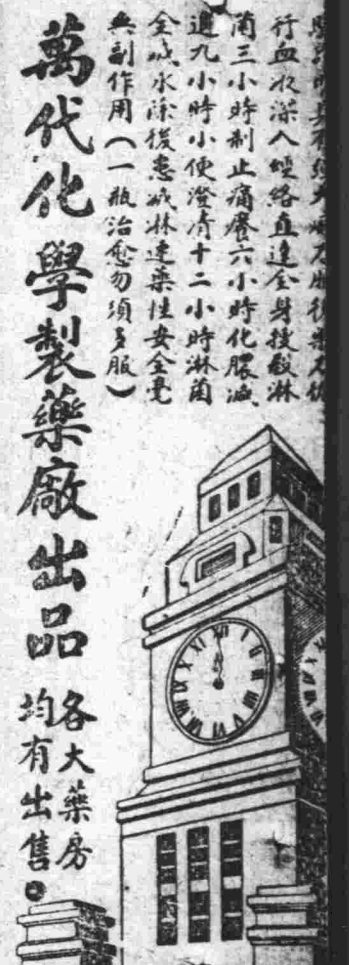 行血液深入經絡直達全身殺淋
菌三小時制止痛癢六小時化膿滅
九小時小便澄清十二小時淋菌
全滅永除後患滅淋速藥性安全毫
無副作用（一瓶治愈勿須多服）
萬代化學製藥廠出品
各大藥房
均有出售。